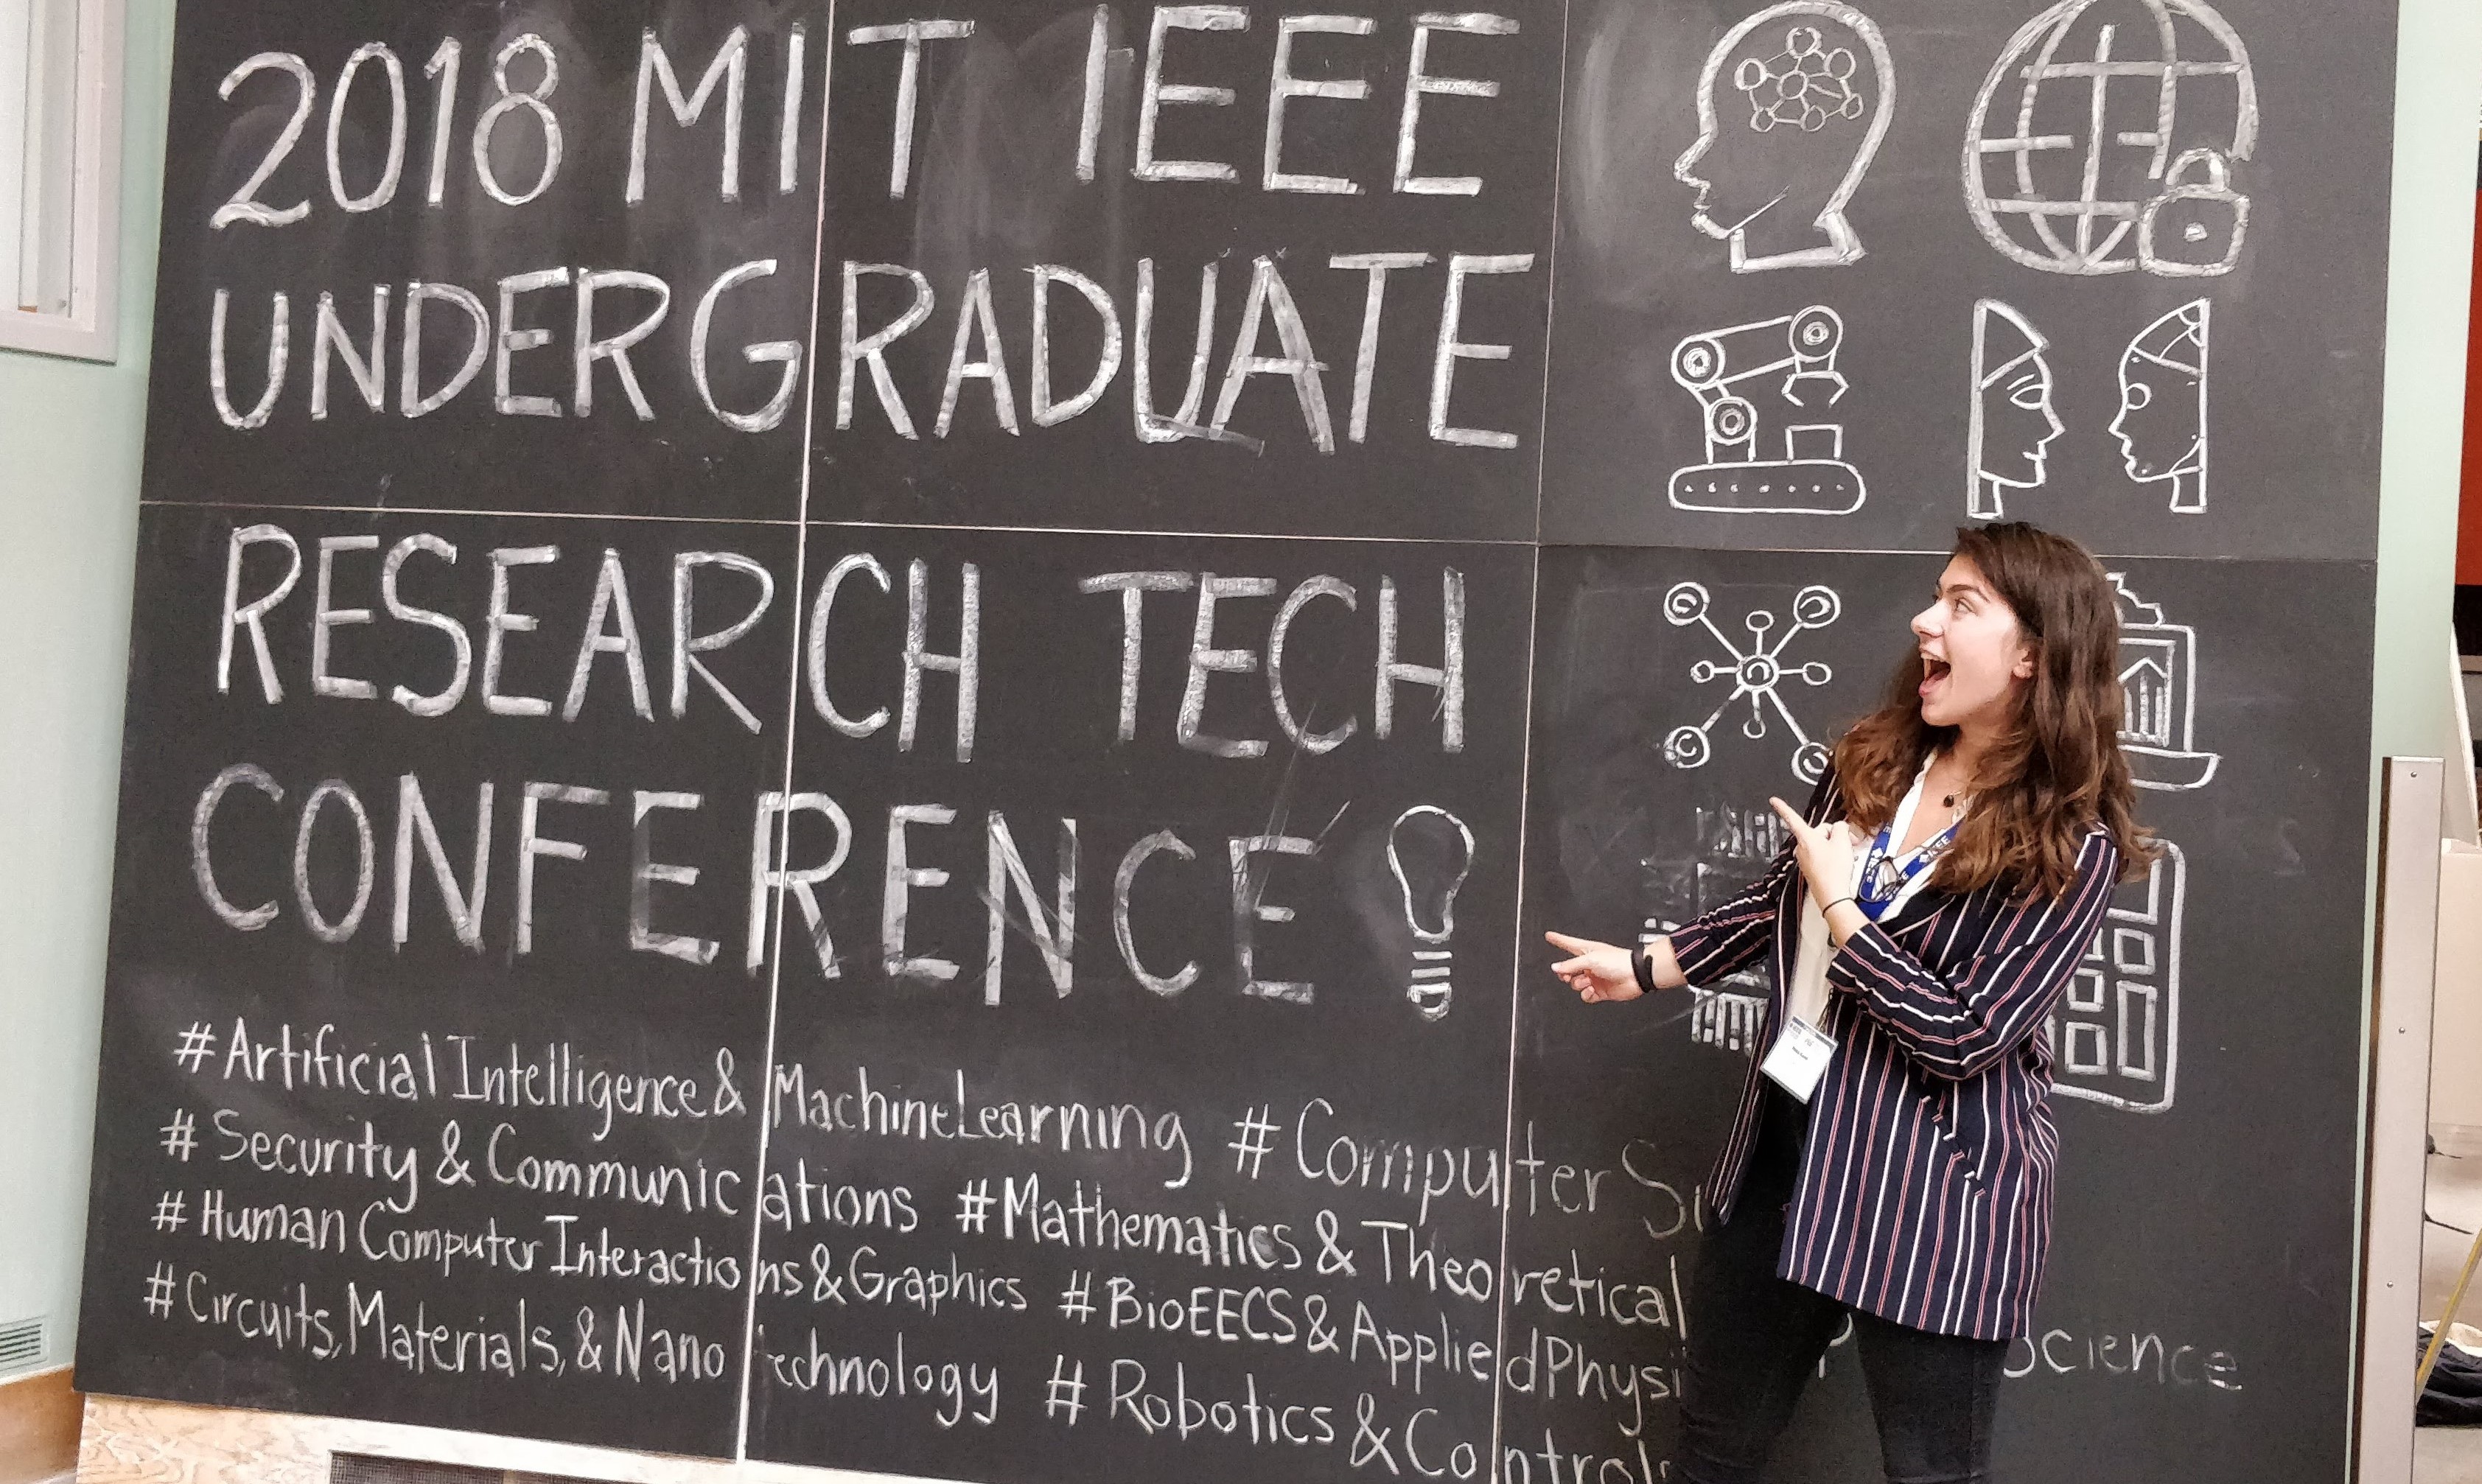 2018 MIT IEEE
UNDERGRADUATE
RESEARCH TECH
CONFERENCE
#Artificial Intelligence & MachineLearning #Computer
# Security & Communications #Mathematics & Theoretical
# Human Computer Interactions & Graphics #BioEECS & Applied Science
# Circuits, Materials, & Nano technology # Robotics & Controls
IEEE